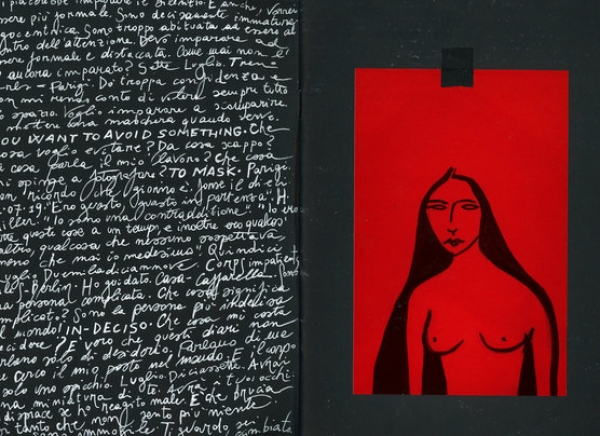 piacerebbe imparare il silenzio. E anche vorrei
essere più formale. Sono decisamente immatura
egocentrica. Sono troppo abituata ad essere al
centro dell'attenzione. Devo imparare ad
essere formale e distaccata. Come mai non
ancora imparato? Sette Luglio. Treno
Parigi. Do troppa confidenza e
non mi rendo conto di volere sempre tutto
lo spazio. Voglio imparare a scomparire.
mettere una maschera quando servo.
YOU WANT TO AVOID SOMETHING. Che
cosa voglio evitare? Da cosa scappo?
cosa parla il mio lavoro? Che cosa
mi spinge a fotografare? TO MASK. Parigi.
non ricordo che giorno è. forse il dieci
.07.19. "Ero questo, questo in partenza". H.
Miller. "Io sono una contraddizione". Io ero
tutte queste cose a un tempo e inoltre ero qualcos'
altro, qualcosa che nessuno sospettava
meno che mai io medesimo" Quindici
Luglio Duemiladiciannove. Corpi impatienti
Berlin. Ho guidato. Casa-Caffarella.
una persona complicata. Che cosa significa
complicato? Sono la persona più indecisa
al mondo! IN-DECISO. Che cosa mi costa
decidere? È vero che questi diari non
parlano solo di desiderio. Parlano di me
che cerco il mio posto nel mondo. E il corpo
solo uno specchio. Luglio. Diciassette. Avrai
una miniatura di te. Avrà i tuoi occhi.
dispiace se ho reagito male. E che brucia
di tanto che non sento più niente.
sono immobile. Ti guardo sei
cambiata